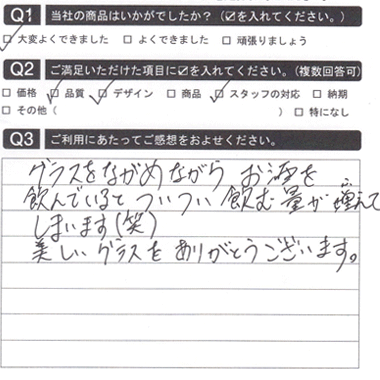 Q1 当社の商品はいかがでしたか？（☑を入れてください。）
☑ 大変よくできました □ よくできました □ 頑張りましょう
Q2 ご満足いただけた項目に☑を入れてください。（複数回答可）
□ 価格 ☑ 品質 ☑ デザイン □ 商品 ☑ スタッフの対応 □ 納期
□ その他（ ） □ 特になし
Q3 ご利用にあたってご感想をおよせください。
グラスをながめながら お酒を
飲んでいると ついつい 飲む量が増えて
しまいます(笑)
美しいグラスをありがとうございます。